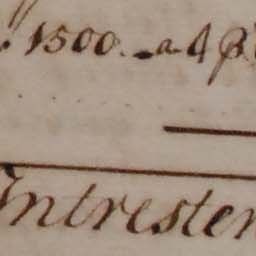 1500. - a 4 p
Intresten